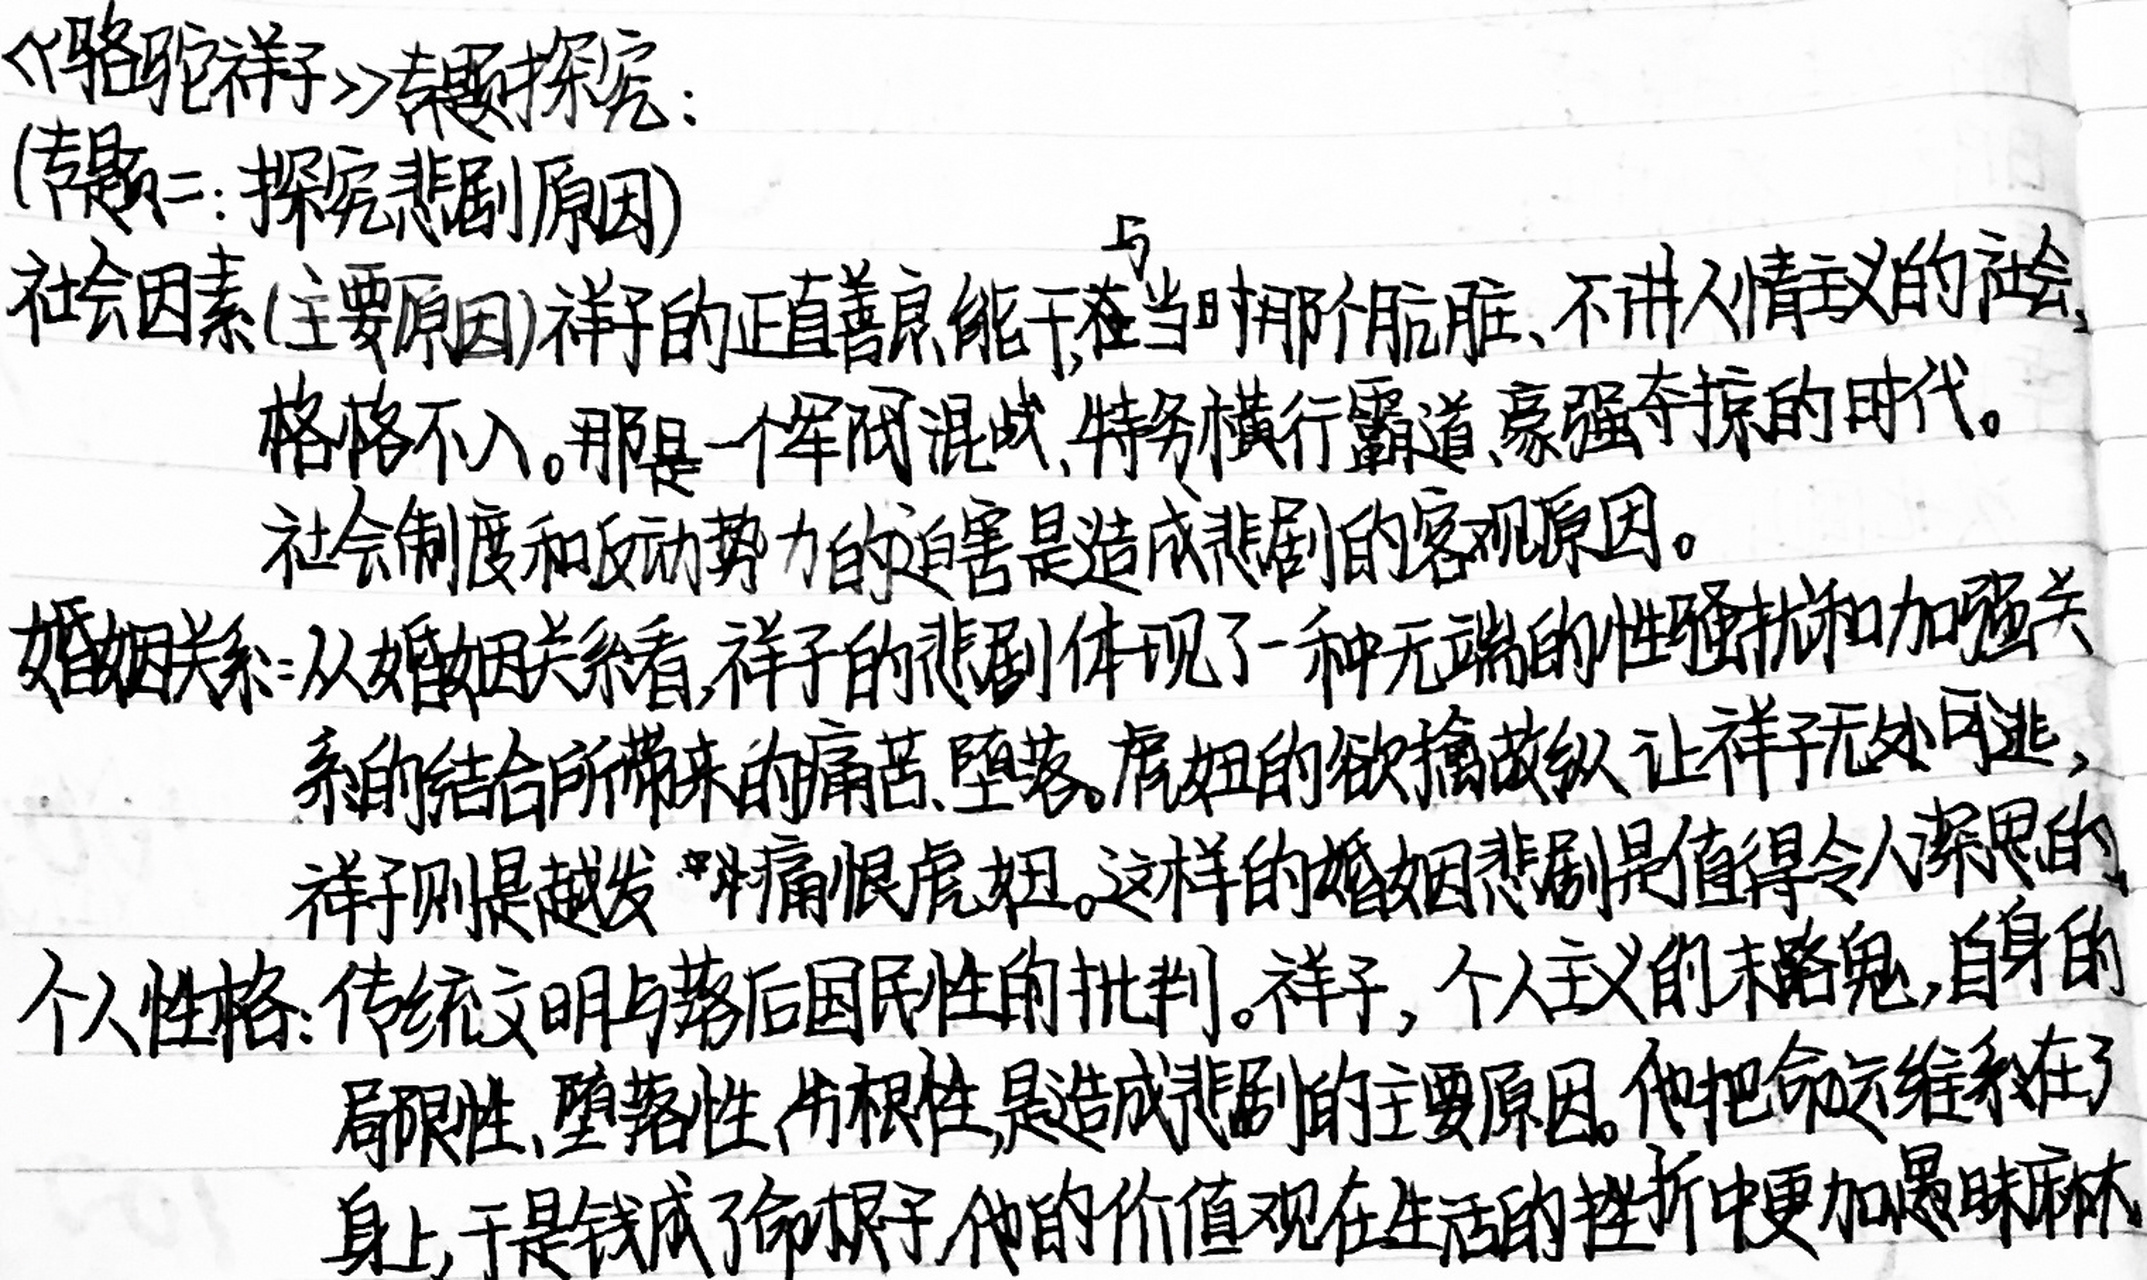 《骆驼祥子》专题探究:
(专题二:探究悲剧原因)
社会因素(主要原因)祥子的正直善良能干,与当时那个肮脏、不讲人情主义的社会,
格格不入。那是一个军阀混战、特务横行霸道、豪强夺掠的时代。
社会制度和反动势力的迫害是造成悲剧的客观原因。
婚姻关系:从婚姻关系看,祥子的悲剧体现了一种无端的性骚扰和加强关
系的结合所带来的痛苦、堕落。虎妞的欲擒故纵让祥子无处可逃,
祥子则是越发痛恨虎妞。这样的婚姻悲剧是值得令人深思的、
个人性格:传统文明与落后国民性的批判。祥子,个人主义的末路鬼,自身的
局限性、堕落性、根性,是造成悲剧的主要原因。他把命运维系在了
身上,于是钱成了命根子,他的价值观在生活的挫折中更加愚昧麻木、